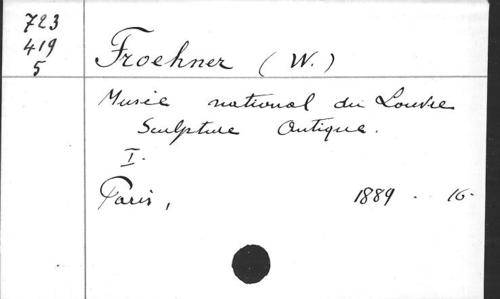 723
419
5
Froehner (W.)
Musée national du Louvre
Sculpture Antique.
I.
Paris, 1889 . 16.